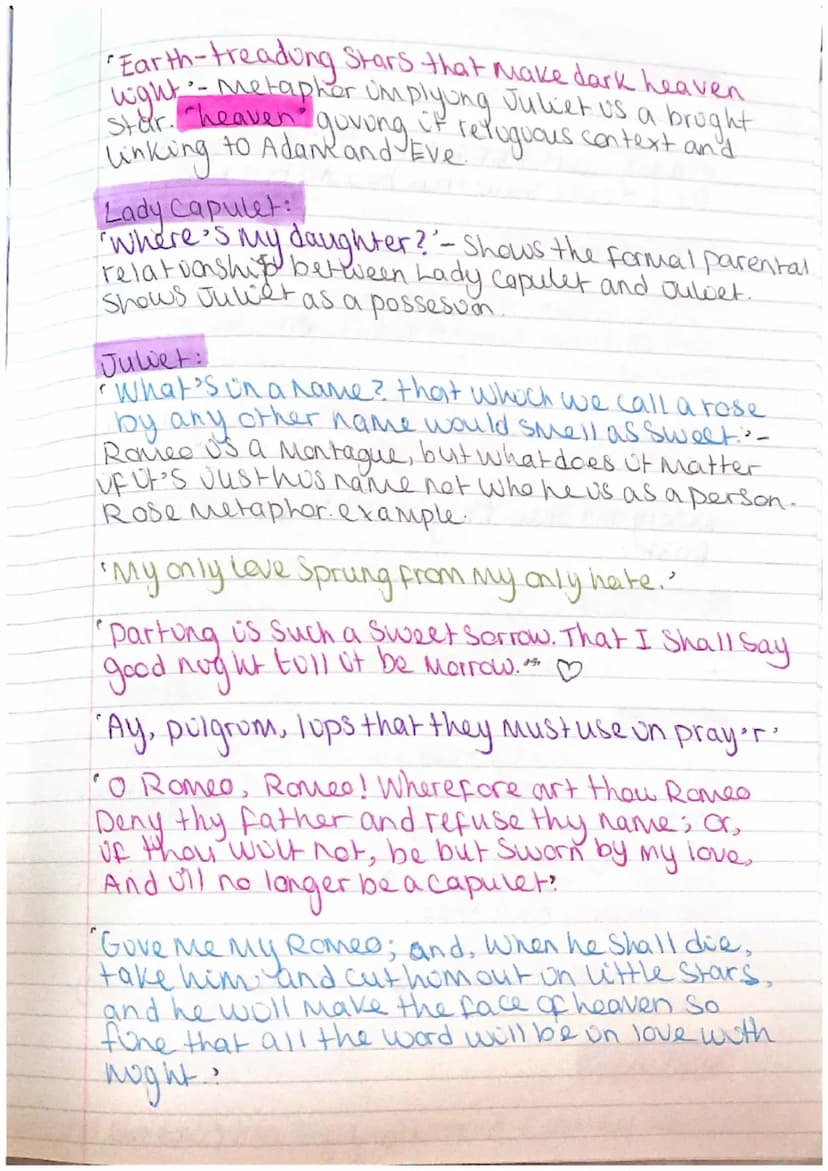 'Earth-treading stars that make dark heaven
light'- Metaphor implying Juliet is a bright
star. "heaven" giving it religious context and
linking to Adam and Eve.
Lady Capulet:
'Where's my daughter?'- Shows the formal parental
relationship between Lady Capulet and Juliet.
Shows Juliet as a possesion.
Juliet:
'What's in a name? that which we call a rose
by any other name would smell as sweet.'-
Romeo is a Montague, but what does it matter
if it's just his name not who he is as a person.
Rose metaphor. example.
'My only love sprung from my only hate.'
'Parting is such a sweet sorrow. That I shall say
good night till it be morrow." ♡
'Ay, pilgrim, lips that they must use in pray'r'
'O Romeo, Romeo! Wherefore art thou Romeo
Deny thy father and refuse thy name; Or,
if thou wilt not, be but sworn by my love,
And i'll no longer be a capulet'
'Give me my Romeo; and, when he shall die,
take him and cut him out in little stars,
and he will make the face of heaven so
fine that all the word will be in love with
night.'